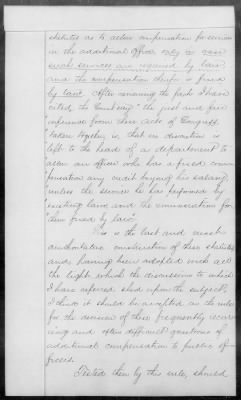 statutes as to allow compensation for services
in the additional office only in case
such services are required by law
and the compensation therefor is fixed
by law". After reviewing the facts I have
cited, the Court says "the just and fair
inference from these acts of Congress,
taken together is, that no discretion is
left to the head of a department to
allow an officer who has a fixed compen
sation any credit beyond his salary,
unless the service he has performed by
existing law, and the remuneration for
them fixed by law".
This is the last and most
authoritative construction of these statutes
and having been adopted with all
the light which the discussions to which
I have referred shed upon the subject,
I think it should be accepted as the rule
for the decision of these frequently recur
ring and often difficult questions of
additional compensation to public of
ficers.
Tested then by this rule, should